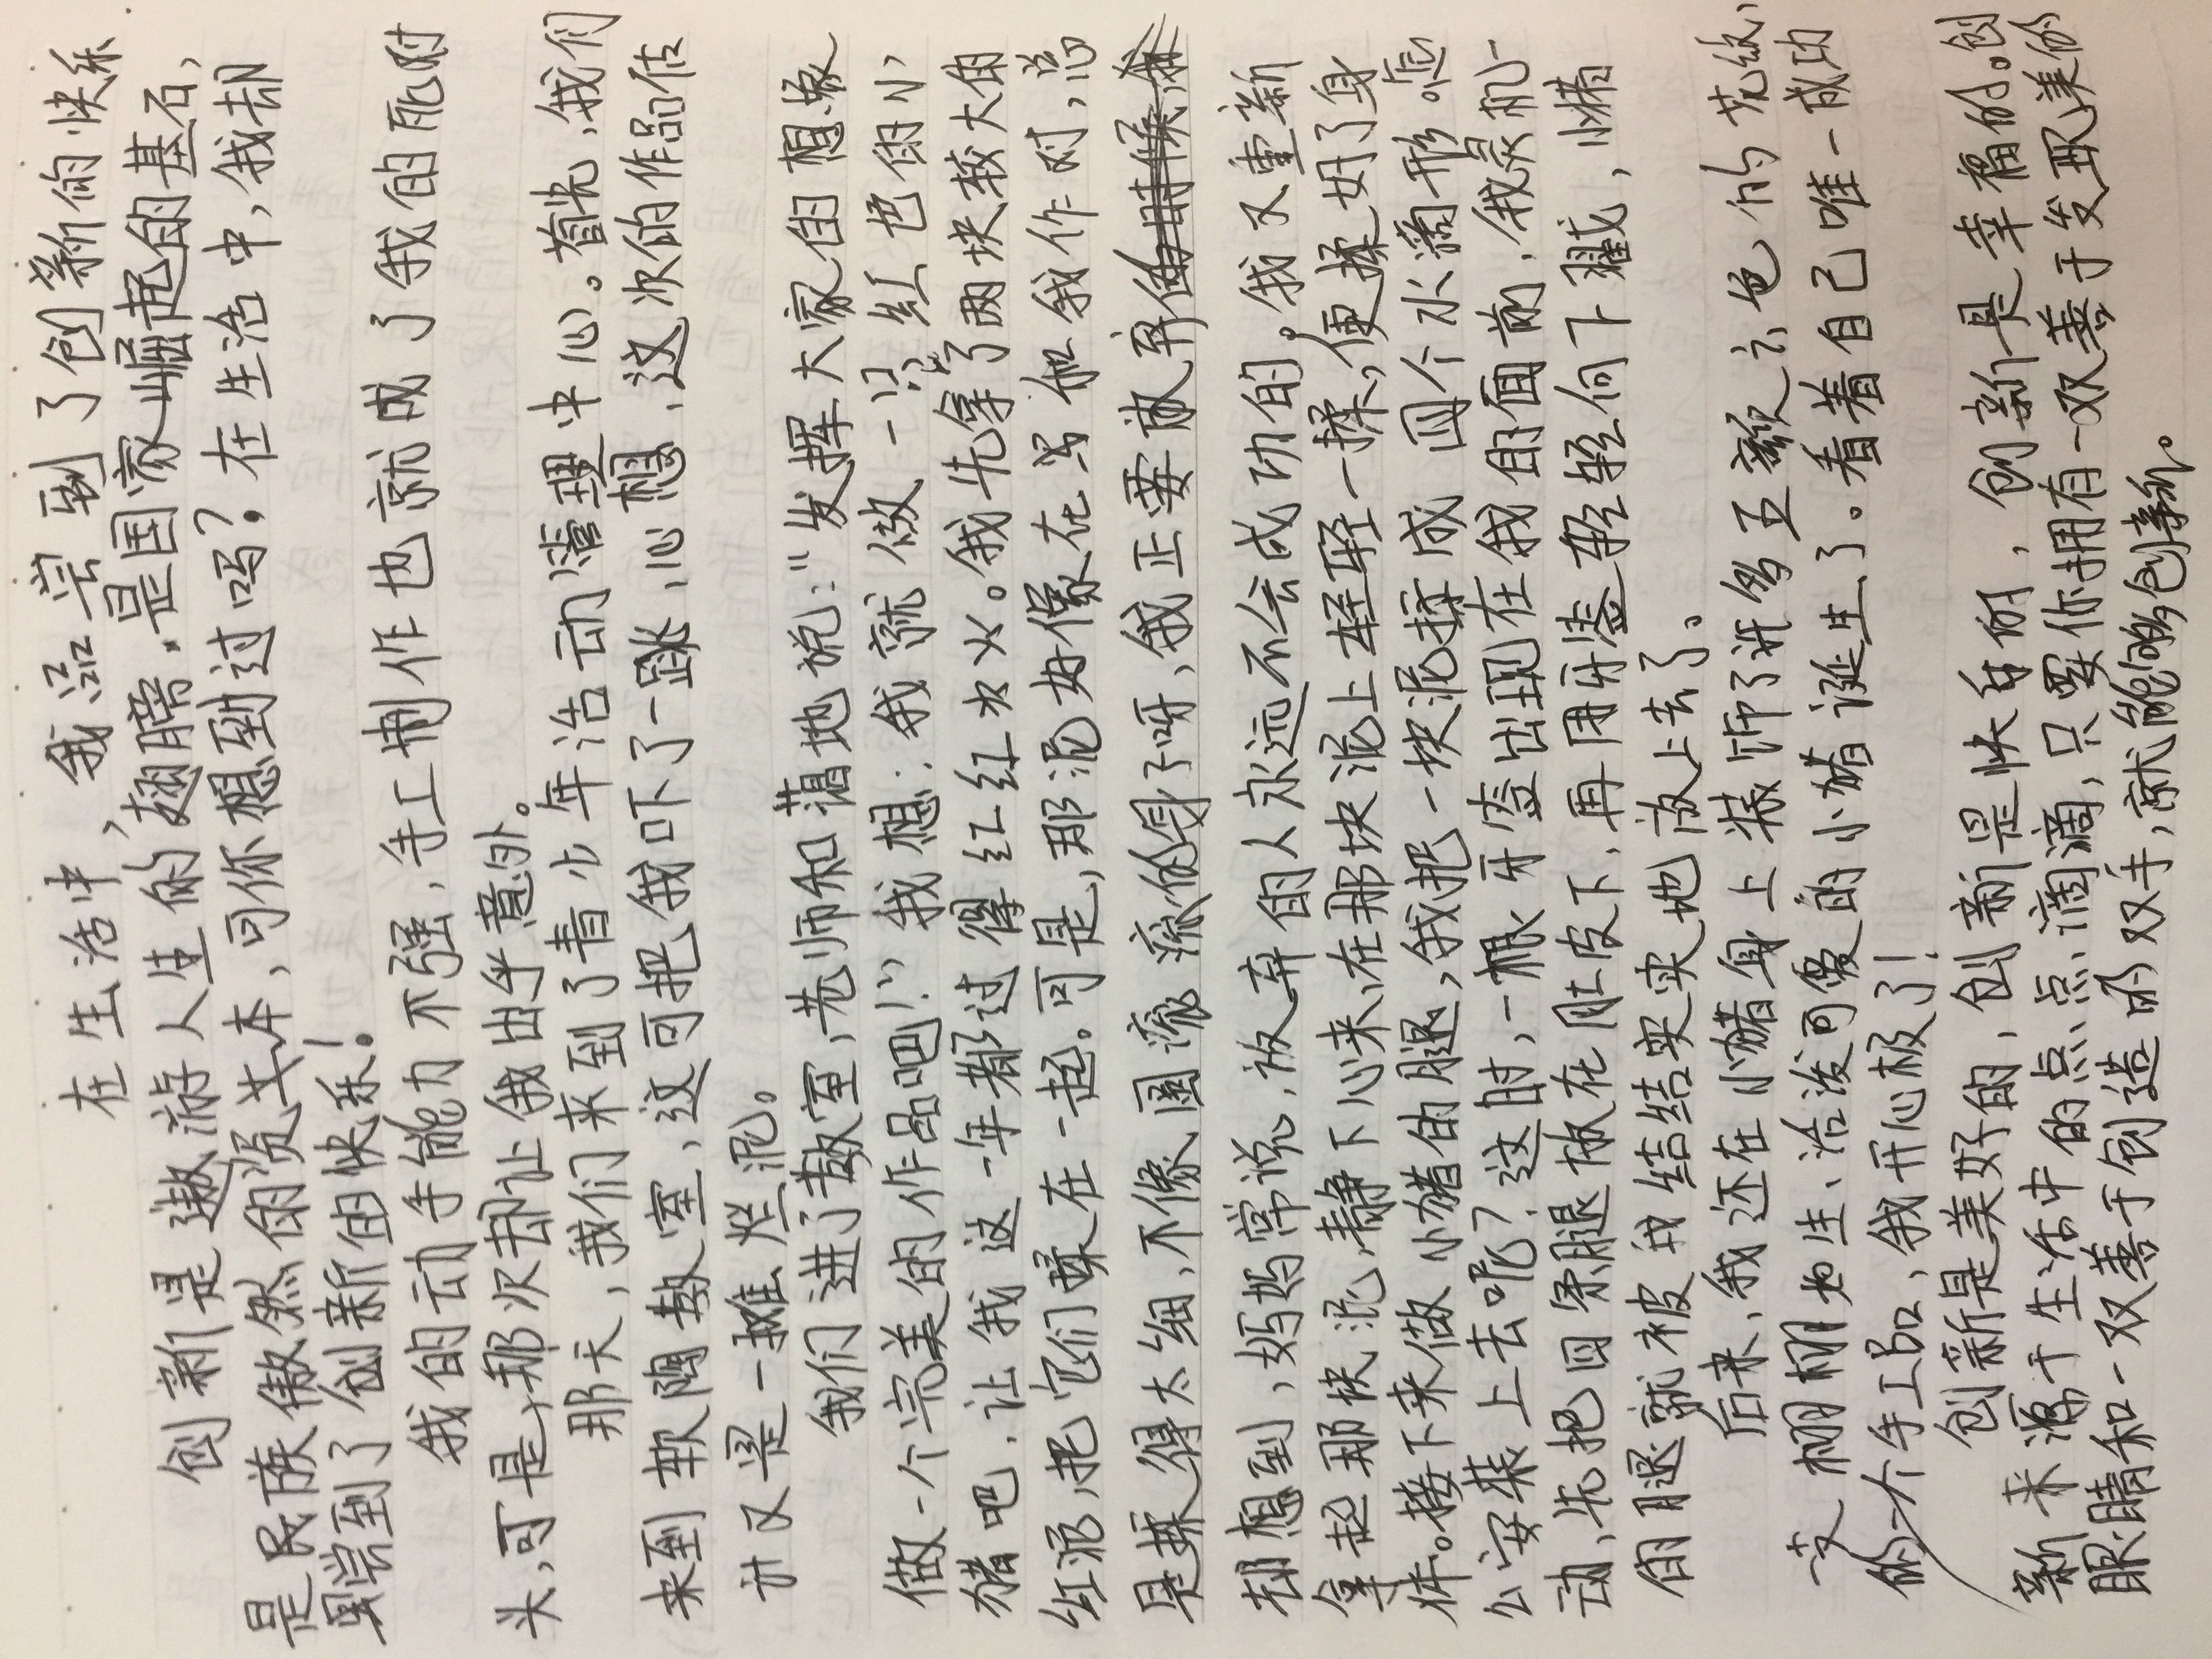 在生活中，我品尝到了创新的快乐
创新是遨游人生的翅膀，是国家崛起的基石，
是民族傲然的资本，可你想到过吗？在生活中，我却
尝到了创新的快乐！
我的动手能力不强，手工制作也就成了我的死对
头，可是，那次却让我出乎意外。
那天，我们来到了青少年活动管理中心。首先，我们
来到软陶教室，这可把我吓了一跳，心想，这次的作品估
计又是一摊烂泥。
我们进了教室，老师和蔼地说：“发挥大家的想象
做一个完美的作品吧！”我想：我就做一只红色的小
猪吧，让我这一年都过得红红火火。我先拿了两块较大的
红泥，把它们揉在一起。可是，那泥好像在与和我作对，总
是揉得太细，不像圆滚滚的身子呀，我正要放弃
却想到，妈妈常说，放弃的人永远不会成功的。我又重新
拿起那块泥，静下心来，在那块泥上轻轻一揉，便揉好了身
体。接下来做小猪的腿，我把一块泥揉成四个水滴形。怎
么安装上去呢？这时，一根牙签出现在我的面前，我灵机一
动，先把四条腿放在肚皮下，再用牙签轻轻向下戳，小猪
的腿就被我结结实实地放上去了。
后来，我还在小猪身上装饰了许多五颜六色的花纹，
一支栩栩如生、活泼可爱的小猪诞生了。看着自己唯一成功
的一个手工品，我开心极了！
创新是美好的，创新是快乐的，创新是幸福的。创
新来源于生活中的点点滴滴，只要你拥有一双善于发现美的
眼睛和一双善于创造的双手，就能够创新。